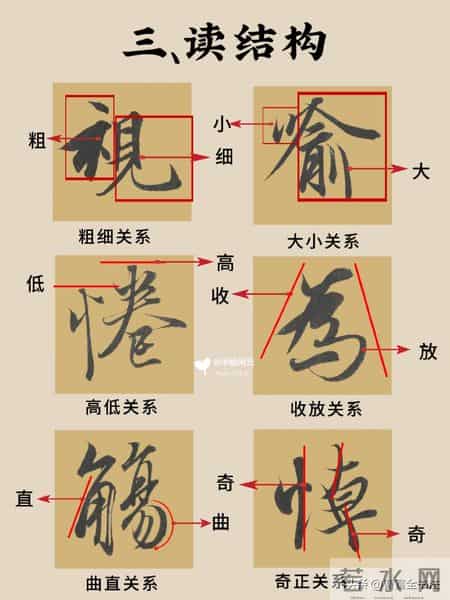 三、读结构
粗 視 细
粗细关系
小 喻 大
大小关系
低 惓 高
高低关系
收 為 放
收放关系
直 觴 曲
曲直关系
奇 悼 奇
奇正关系
若水网